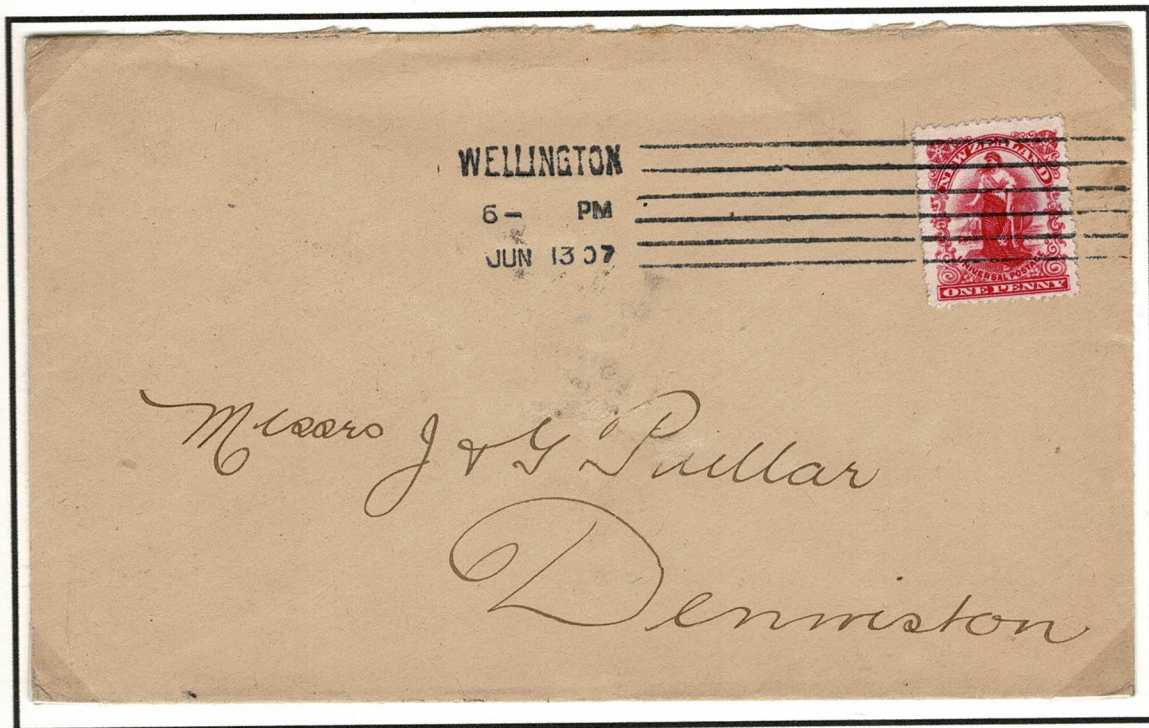 WELLINGTON
6- PM
JUN 13 07
NEW ZEALAND
UNIVERSAL POSTAGE
ONE PENNY
Messrs J & G Pullar
Denniston